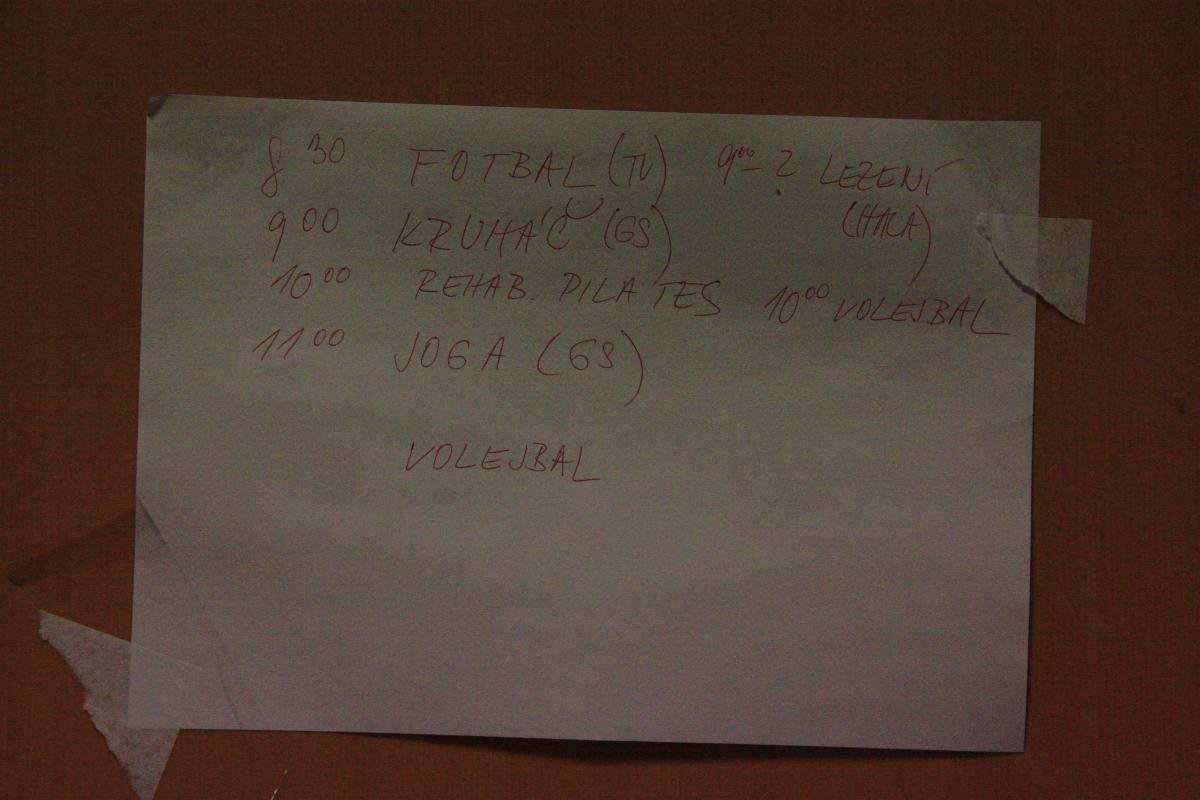 8 30 FOTBAL (TV) 9 00 - ? LEZENÍ
9 00 KRUHÁČ (GS) (HALA)
10 00 REHAB. PILATES 10 00 VOLEJBAL
11 00 JOGA (GS)
VOLEJBAL